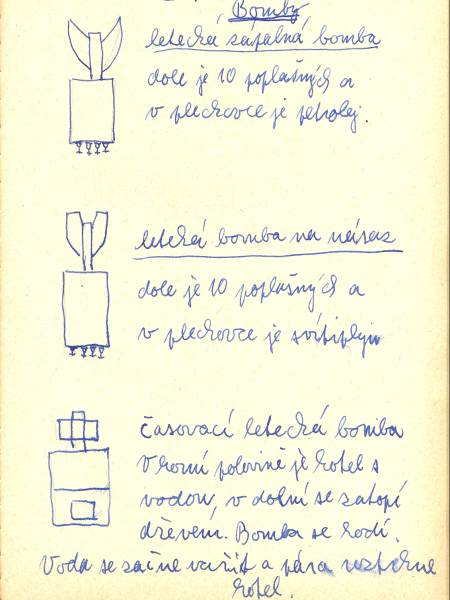 Bomby
letecká zápalná bomba
dole je 10 poplašných a
v plechovce je petrolej.
letecká bomba na náraz
dole je 10 poplašných a
v plechovce je svítiplyn
časovací letecká bomba
V horní polovině je kotel s
vodou, v dolní se zatopí
dřevem. Bomba se hodí.
Voda se začne vařit a pára roztrhne
kotel.